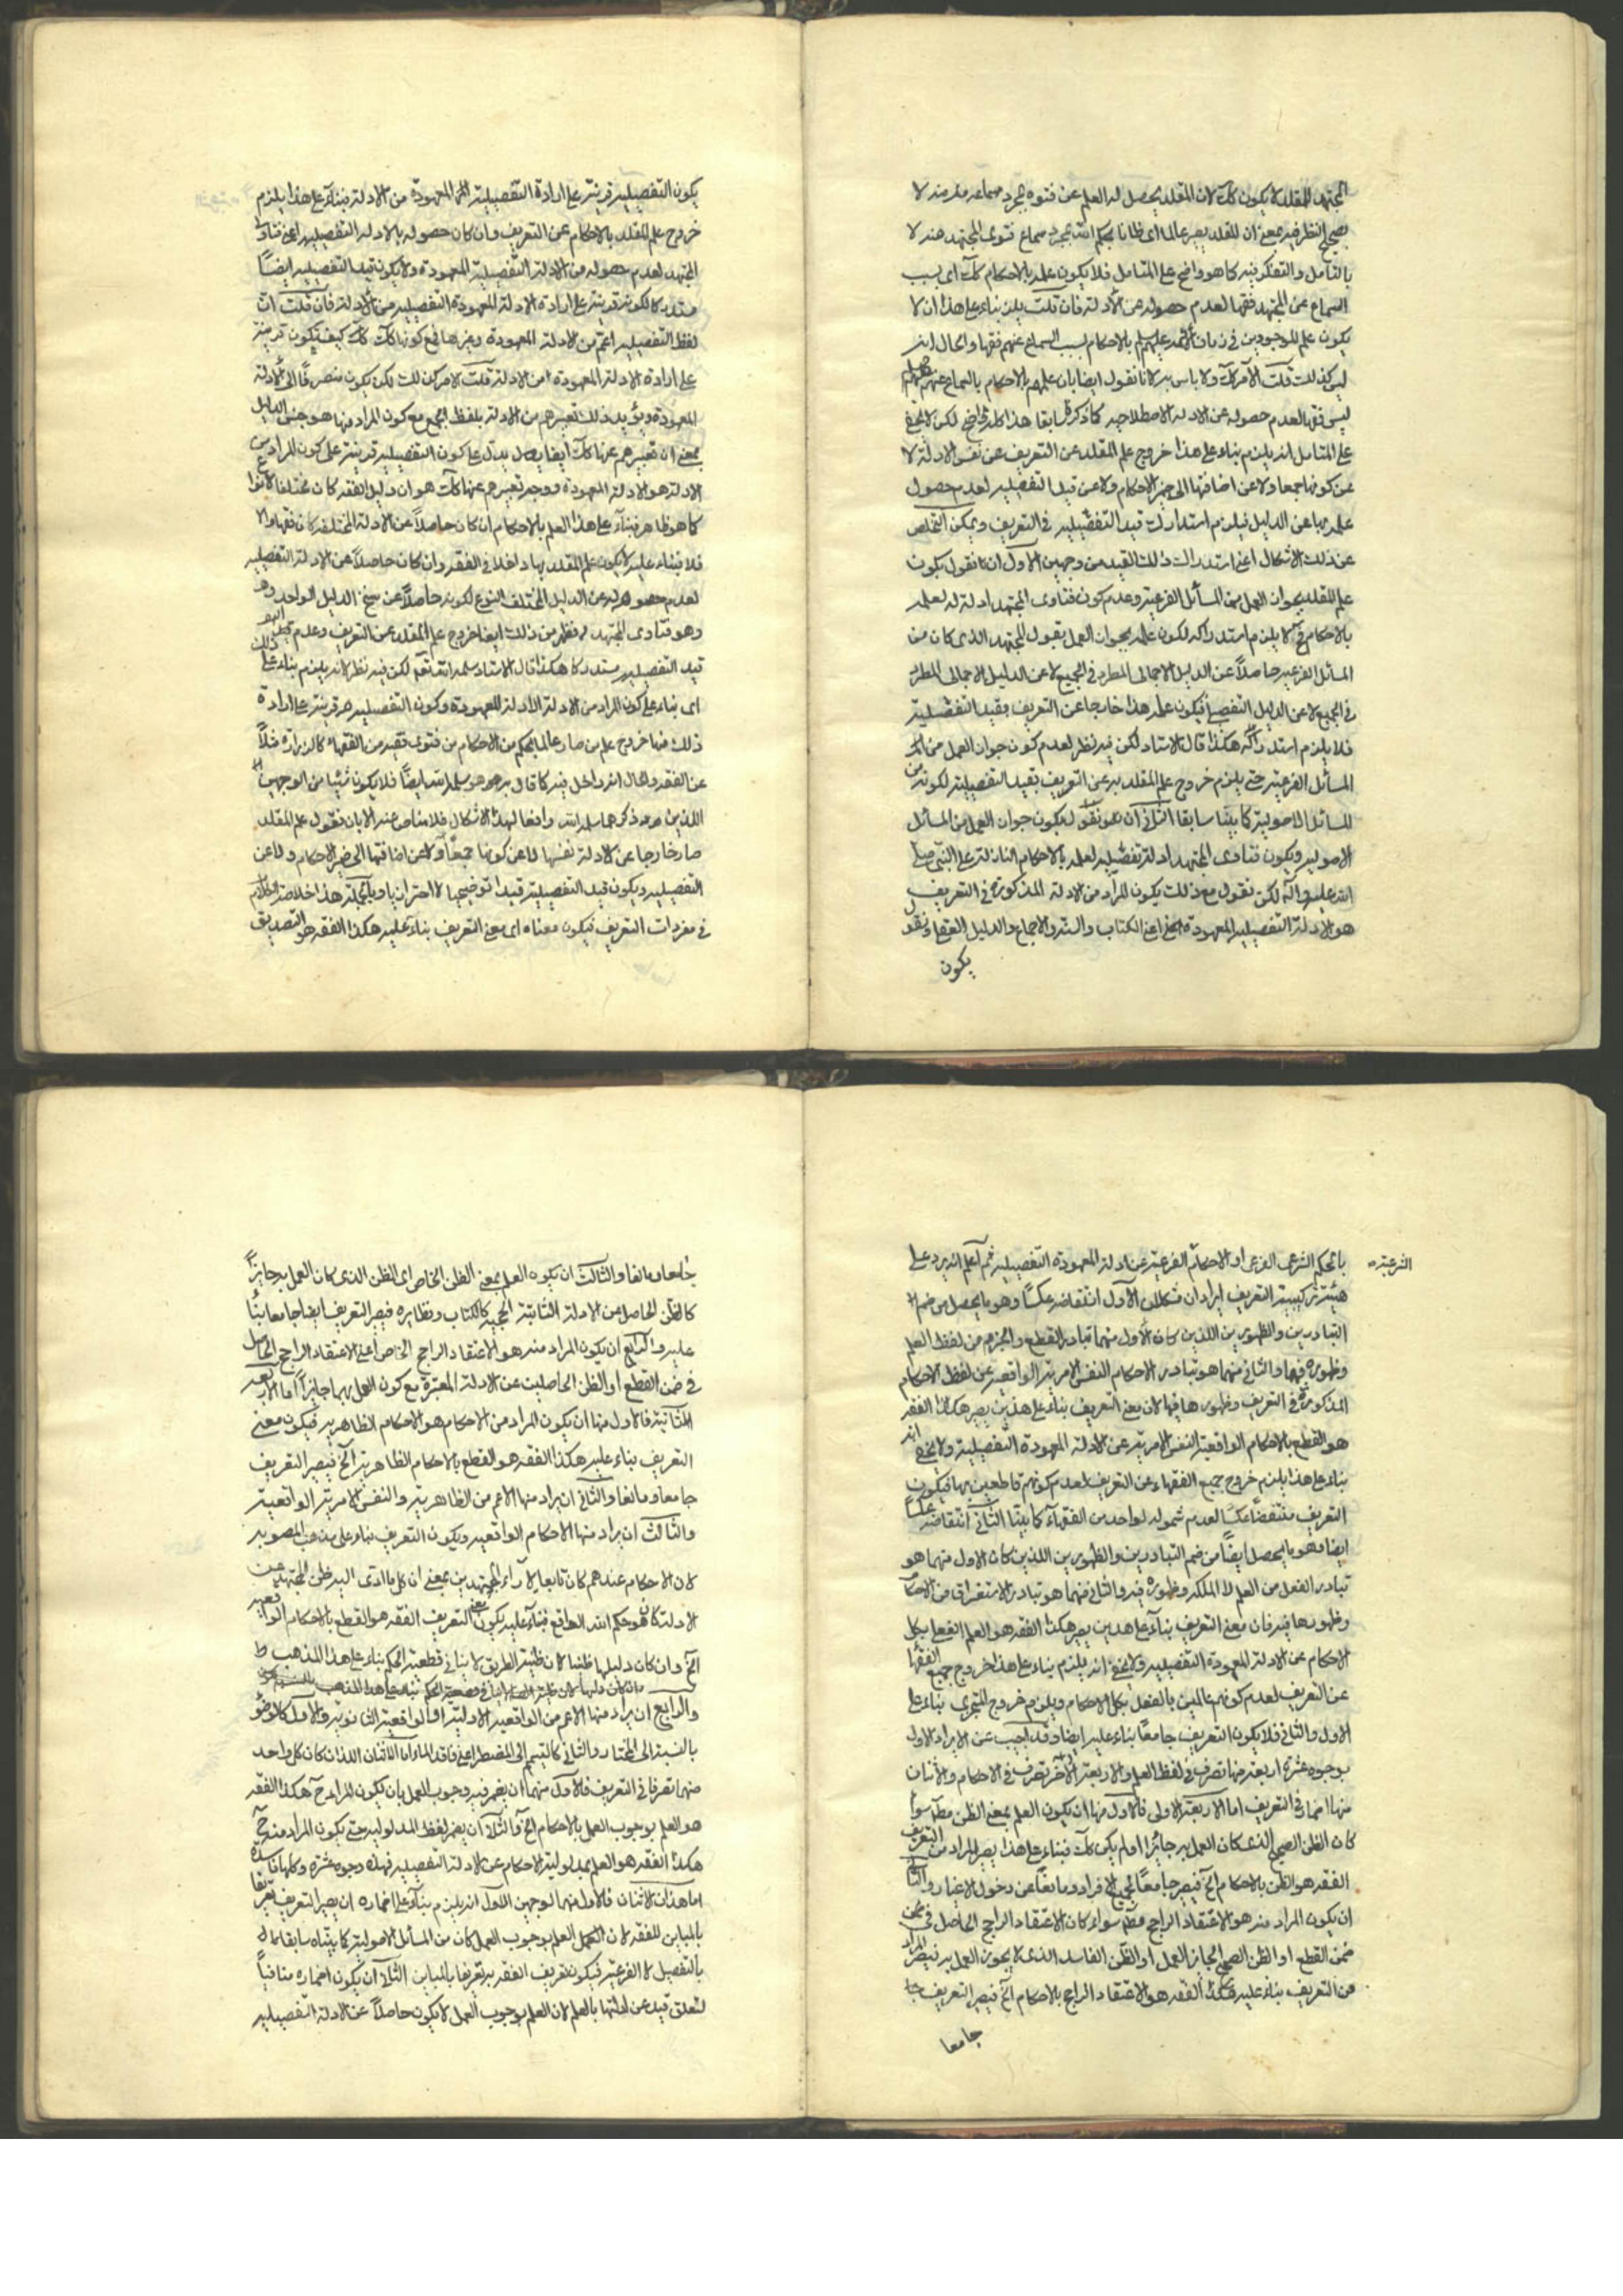 المجتهد المقلد لا يكون كك لان المقلد يحصل له العلم عن فتوه بمجرد سماعه منه لا
يصح النظر فيه بمعنى ان المقلد يصير عالما اى ظانا بحكم الله بمجرد سماع فتوى المجتهد منه لا
بالتامل والتفكر فيه كما هو واضح على المتامل فلا يكون علمه بالاحكام كك اى بسبب
السماع عن المجتهد فقها لعدم حصوله عن الأدلة فان قلت يلزم بناء على هذا ان لا
يكون علم الموجودين فى زمان الأئمة عليهم بالاحكام بسبب السماع عنهم فقها والحال انه
ليس كذلك قلت الأمر كك ولا باس به لانا نقول ايضا بان علمهم بالاحكام بالسماع عنهم
ليس فقها لعدم حصوله عن الادلة الاصطلاحيه كما ذكر سابقا هذا كله واضح لكن لا يخفى
على المتامل انه يلزم بناء على هذا خروج علم المقلد عن التعريف عن نفس الادلة لا
عن كونها جمعا ولا عن اضافتها الى ضمير الاحكام ولا عن قيد التفصيليه لعدم حصول
علمه بها عن الدليل فيلزم استدراك قيد التفصيليه فى التعريف ويمكن التخلص
عن ذلك الاشكال اعنى استدراك ذلك القيد من وجهين الأول ان نقول يكون
علم المقلد بجواز العمل من المسائل الفرعية وعدم كون فتاوى المجتهد ادلة له لعلمه
بالاحكام فح لا يلزم استدراكه لكون علمه بجواز العمل بقول المجتهد الذى كان من
المسائل الفرعيه حاصلاً عن الدليل الاجمالى المطرد فى الجميع لا عن الدليل الاجمالى المطرد
فى الجميع لا عن الدليل التفصيلى فيكون علمه هذا خارجا عن التعريف بقيد التفصيليه
فلا يلزم استدراكه هكذا قال الاستاد لكن فيه نظر لعدم كون جواز العمل من
المسائل الفرعية حتى يلزم خروج علم المقلد به عن التعريف بقيد التفصيلية لكونه من
المسائل الاصولية كما بيّنا سابقا الثانى ان نقول يكون جواز العمل من المسائل
الاصوليه ويكون فتاوى المجتهد ادلة تفصيليه لعلمه بالاحكام النازلة على النبى صلى
الله عليه وآله لكن نقول مع ذلك يكون المراد من الادلة المذكورة فى التعريف
هو الادلة التفصيلية المعهودة اعنى الكتاب والسنة والاجماع والدليل العقلى ونقول
يكون
يكون التفصيليه قرينة على ارادة التفصيلية المعهودة من الادلة فبناءً على هذا يلزم
خروج علم المقلد بالاحكام عن التعريف وان كان حصوله بالادلة التفصيليه اعنى فتاوى
المجتهد لعدم حصوله من الادلة التفصيلية المعهودة ولا يكون قيد التفصيليه ايضاً
مستدركا لكونه قرينة على ارادة الادلة المعهودة التفصيليه من الأدلة فان قلت ان
لفظ التفصيليه اعم من الادلة المعهودة وغيرها فمع كونها كك كيف يكون قرينة
على ارادة الادلة المعهودة من الادلة قلت الامر كذلك لكن يكون منصرفًا الى الأدلة
المعهودة ويؤيد ذلك تعبيرهم من الادلة بلفظ الجمع مع كون المراد منها هو جنس الدليل
بمعنى ان تعبيرهم عنها كك ايضا يدل على كون التفصيليه قرينة على كون المراد من
الادلة هو الادلة المعهودة ووجه تعبيرهم عنها كك هو ان دليل الفقه كان مختلف الانواع
كما هو ظاهر فبناءً على هذا العلم بالاحكام ان كان حاصلاً عن الادلة المختلفه كان فقها والا
فلا فبناء عليه لا يكون علم المقلد بها داخلا فى الفقه وان كان حاصلاً عن الادلة التفصيليه
لعدم حصوله عن الدليل المختلف النوع لكونه حاصلاً عن سنخ الدليل الواحد
وهو فتاوى المجتهد فظهر من ذلك ايضا خروج علم المقلد عن التعريف وعدم
قيد التفصيليه مستدركا هكذا قال الاستاد سلمه الله تعم لكن فيه نظر لانه يلزم بناء على
اى بناء على كون المراد من الادلة الادلة المعهودة وكون التفصيليه قرينة على ارادة
ذلك منها خروج علم من صار عالما بحكم من الاحكام من فتوى فقيه من الفقهاء كالزرارة مثلاً
عن الفقه والحال انه داخل فيه كما قال به هو سلمه الله ايضًا فلا يكون شيئا من الوجهين
اللذين ذكرهما سلمه الله رافعا لهذا الاشكال فلا مناص عنه الا بان نقول علم المقلد
صار خارجا عن الادلة نفسها لا عن كونها جمعًا ولا عن اضافتها الى ضمير الاحكام ولا عن
التفصيليه ويكون قيد التفصيلية قيدا توضيحيا لا احترازيا وبالجملة هذا خلاصة الكلام
فى مفردات التعريف فيكون معناه اى معنى التعريف بناءً عليه هكذا الفقه هو التصديق
الشرعية
بالحكم الشرعى الفرعى او الاحكام الفرعية عن ادلة المعهودة التفصيليه ثم اعلم انه يرد على
هيئة تركيبية التعريف ايرادان مشكلان الأول انتقاضه عكسًا وهو ما يحصل من ضم
التبادرين والظهورين اللذين كان الأول منهما تبادر القطع والجزم من لفظ العلم
وظهوره فيهما والثانى منهما هو تبادر الاحكام النفس الامرية الواقعيه عن لفظ الاحكام
المذكورة فى التعريف وظهورها فيها لان معنى التعريف بناء على هذين يصير هكذا الفقه
هو القطع بالاحكام الواقعية النفس الامرية عن الادلة المعهودة التفصيلية ولا يخفى انه
بناء على هذا يلزم خروج جميع الفقهاء عن التعريف لعدم كونهم قاطعين بها فيكون
التعريف منتقضًا عكسًا لعدم شموله لواحد من الفقهاء كما بيّنا الثانى انتقاضه عكسًا
ايضا وهو ما يحصل ايضًا من ضم التبادرين والظهورين اللذين كان الاول منهما هو
تبادر الفعل من العلم لا الملكة وظهوره فيه والثانى منهما هو تبادر الاستغراق من الاحكام
وظهورها فيه فان معنى التعريف بناءً على هذين يصير هكذا الفقه هو العلم الفعلى بكل
الاحكام عن الادلة المعهودة التفصيليه ولا يخفى انه يلزم بناء على هذا خروج جميع الفقهاء
عن التعريف لعدم كونهم عالمين بالفعل بكل الاحكام ويلزم خروج المتجزى بناء على
الاول والثانى فلا يكون التعريف جامعًا بناء عليه ايضا وقد اجيب عن الايراد الاول
بوجوه عشرة اربعة منها تصرف فى لفظ العلم والاربعة الآخر تصرف فى الاحكام والاثنان
منها اضمار فى التعريف اما الاربعة الاولى فالاول منها ان يكون العلم بمعنى الظن مطلقا سواء
كان الظن الصحيح الذى كان العمل به جائزا او لم يكن كك فبناء على هذا يصير المراد من التعريف
الفقه هو الظن بالاحكام الخ فيصير جامعًا لجميع الافراد ومانعًا عن دخول الاغيار والثانى
ان يكون المراد منه هو الاعتقاد الراجح مطلقا سواء كان الاعتقاد الراجح الحاصل فى ضمن
ضمن القطع او الظن الصحيح الجايز العمل او الظن الفاسد الذى لا يجوز العمل به فيصير المراد
من التعريف بناء عليه هكذا الفقه هو الاعتقاد الراجح بالاحكام الخ فيصير التعريف جا
جامعا
جامعا ومانعا والثالث ان يكون العلم بمعنى الظن الخاص اى الظن الذى كان العمل به جايزاً
كالظن الحاصل من الادلة الثابتة الحجية كالكتاب ونظايره فيصير التعريف ايضا جامعا بناءً
عليه والرابع ان يكون المراد منه هو الاعتقاد الراجح الخاص اعنى الاعتقاد الراجح الحاصل
فى ضمن القطع او الظن الحاصلين عن الادلة المعتبرة مع كون العمل بهما جايزاً اما الاربعة
الثانية فالاول منها ان يكون المراد من الاحكام هو الاحكام الظاهريه فيكون معنى
التعريف بناء عليه هكذا الفقه هو القطع بالاحكام الظاهرية الخ فيصير التعريف
جامعا ومانعا والثانى ان يراد منها الاعم من الظاهرية والنفس الامرية الواقعية
والثالث ان يراد منها الاحكام الواقعيه ويكون التعريف بناء على مذهب المصوبه
لان الاحكام عندهم كان تابعا لآراء المجتهدين بمعنى ان كل ما ادى اليه ظن المجتهد عن
الادلة كان هو حكم الله الواقع فبناءً عليه يكون معنى التعريف الفقه هو القطع بالاحكام الواقعيه
الخ وان كان دليلها ظنيا لان ظنية الطريق لا ينافى قطعية الحكم بناء على هذا المذهب
والرابع ان يراد منها الاعم من الواقعيه الاولية او الواقعية الثانويه والاول كالوضوء
بالنسبة الى المختار والثانى كالتيمم الى المضطر اعنى فاقد الماء اما الاثنان اللذان كان كل واحد
منهما تصرفا فى التعريف فالاول منهما ان يضمر فيه وجوب العمل بان يكون المراد ح هكذا الفقه
هو العلم بوجوب العمل بالاحكام الخ والثانى ان يضمر لفظ المدلوليه حتى يكون المراد منه ح
هكذا الفقه هو العلم بمدلولية الاحكام عن الادلة التفصيليه فهذه وجوه عشرة وكلها فاسدة
اما هذان الاثنان فالاول منهما لوجهين الاول انه يلزم بناءً على اضماره ان يصير التعريف تعريفا
بالمباين للفقه لان العلم بوجوب العمل كان من المسائل الاصولية كما بيّناه سابقا
بالتفصيل لا الفرعية فيكون تعريف الفقه به تعريفا بالمباين الثانى ان يكون اضماره منافياً
لتعلق قيد عن ادلتها بالعلم لان العلم بوجوب العمل لا يكون حاصلاً عن الادلة التفصيليه